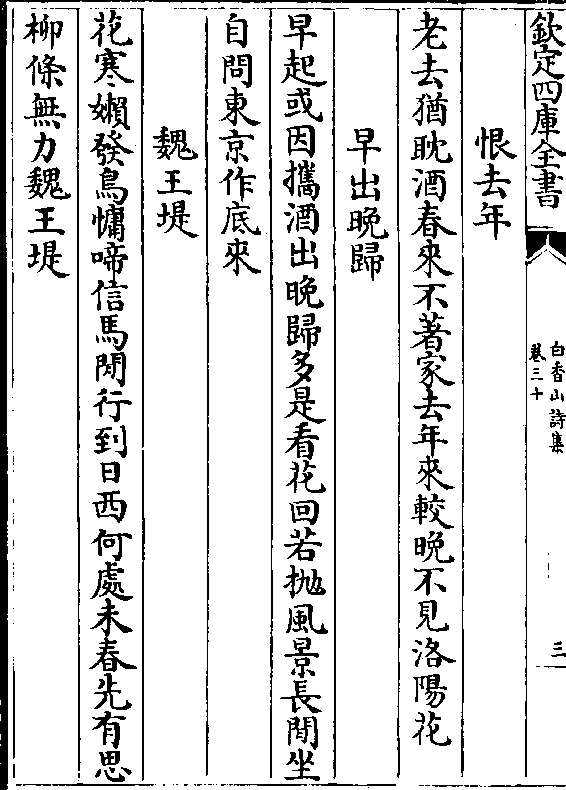 欽定四庫全書
白香山詩集
卷三十
三
恨去年
老去猶耽酒春來不著家去年來較晚不見洛陽花
早出晚歸
早起或因攜酒出晚歸多是看花回若抛風景長閒坐
自問東京作底來
魏王堤
花寒嬾發鳥慵啼信馬閒行到日西何處未春先有思
柳條無力魏王堤